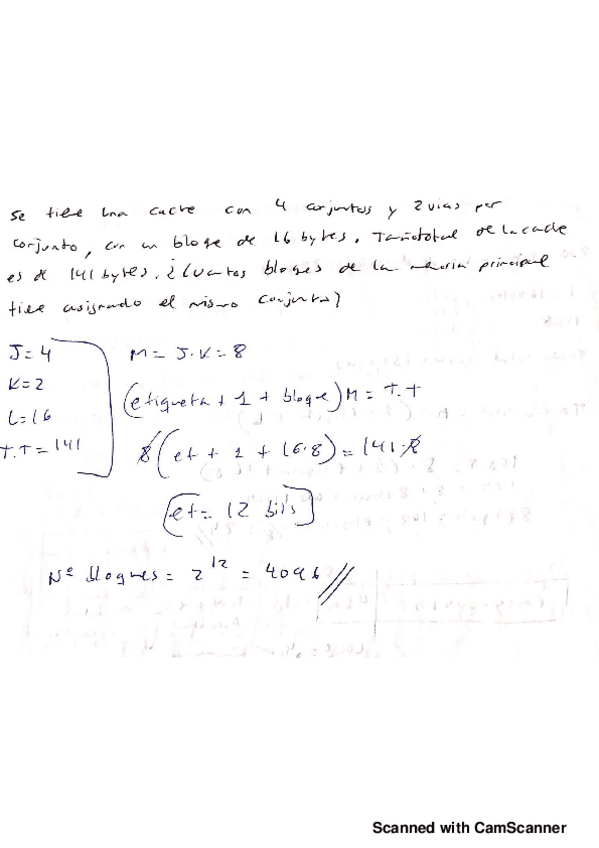 Se tiene una cache con 4 conjuntos y 2 vias por
conjunto, con un bloque de 16 bytes. Tamaño total de la cache
es de 141 bytes. ¿Cuantos bloques de la memoria principal
tiene asignado el mismo conjunto?
J=4 M= J·K=8
K=2 (etiqueta + 1 + bloque)M = T.T
L=16
T.T=141 8(et + 1 + 16·8) = 141·8
et= 12 bits
Nº bloques = 2^12 = 4096 //
Scanned with CamScanner